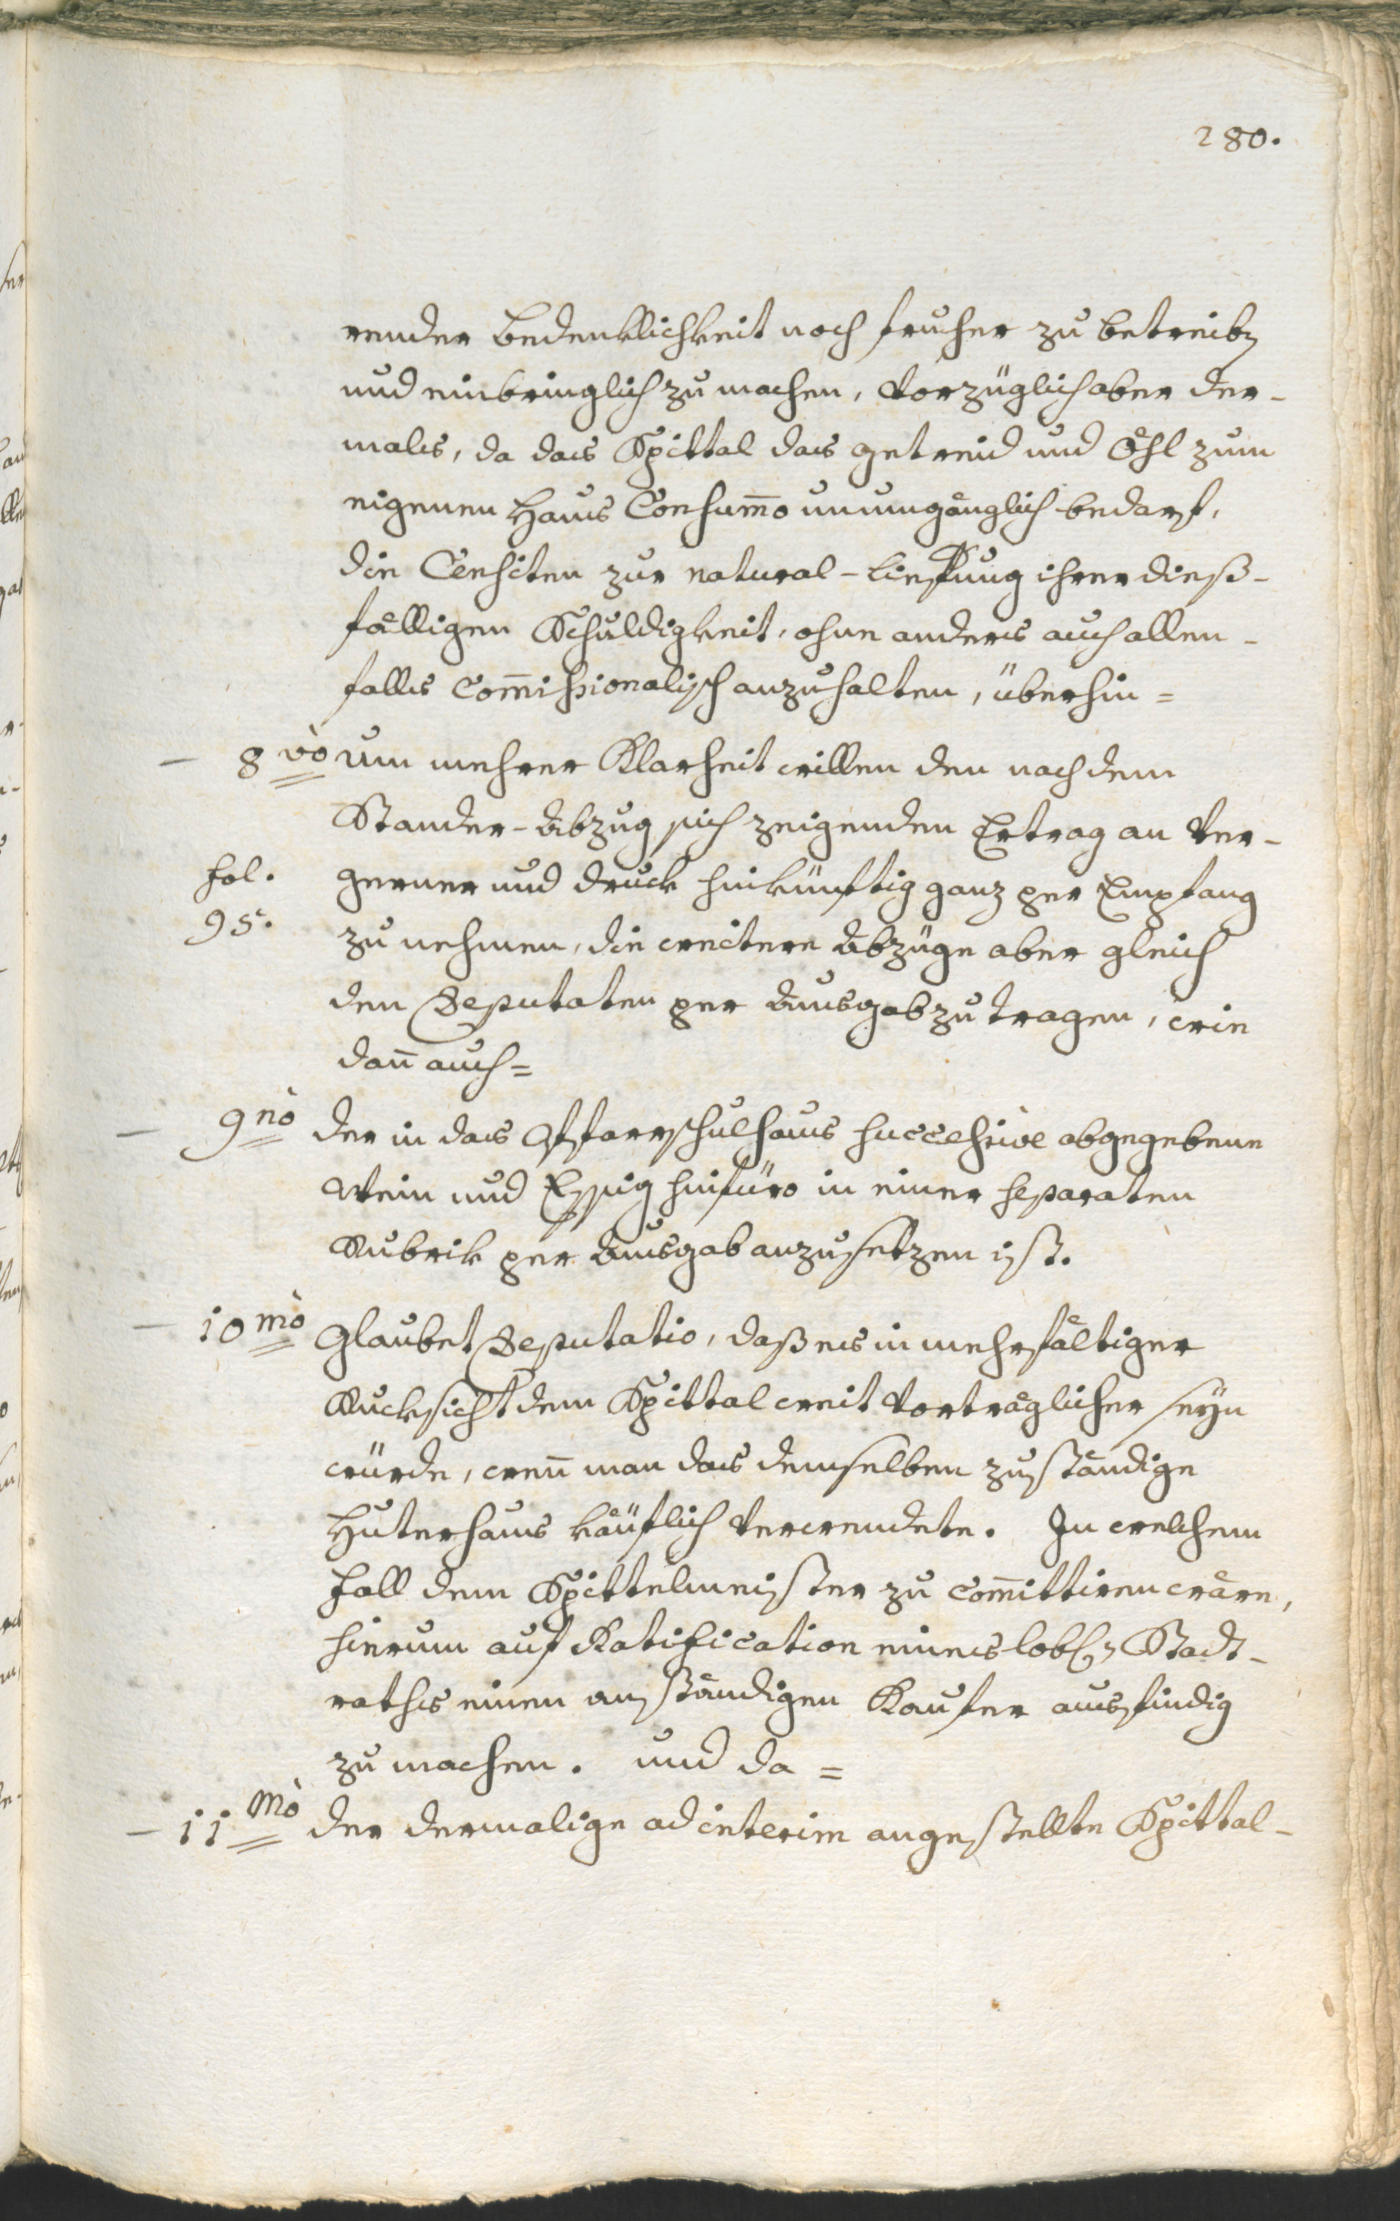 280.
render Bedenklichkeit noch fruher zu betreiben
und einbringlich zu machen, vorzüglich aber der-
mals, da das Spittal das getreid und Öhl zum
eigenen Haus Consum̄o unumgänglich bedarf,
die Censiten zur natural-Liefrung ihrer dieß-
fälligen Schuldigkeit, ohne anders auch allen-
falls Com̄ißionalisch anzuhalten, überhin=
– 8vò um mehrer Klarheit willen den nach dem
Stander-Abzug sich zeigenden Ertrag an Ver-
fol. gerner und druck hinkünftig ganz per Empfang
95. zu nehmen, die weitere Abzüge aber gleich
den Deputaten per Ausgab zu tragen, wie
dan̄ auch=
– 9nò der in das Pfarrschulhaus successive abgegebene
Wein und Essig hinfüro in einer separaten
Rubrik per Ausgab anzusetzen ist.
– 10mò Glaubet Deputatio, daß es in mehrfältiger
Rucksicht dem Spittal weit vorträglicher seyn
würde, wen̄ man das demselben zuständige
Huterhaus käuflich verwendete. In welchem
Fall dem Spittelmeister zu com̄ittiren wäre,
hierum auf Ratification eines lobl. Stadt-
raths einen anständigen Kaufer ausfindig
zu machen. und da=
– 11mò der dermalige ad interim angestellte Spittal-